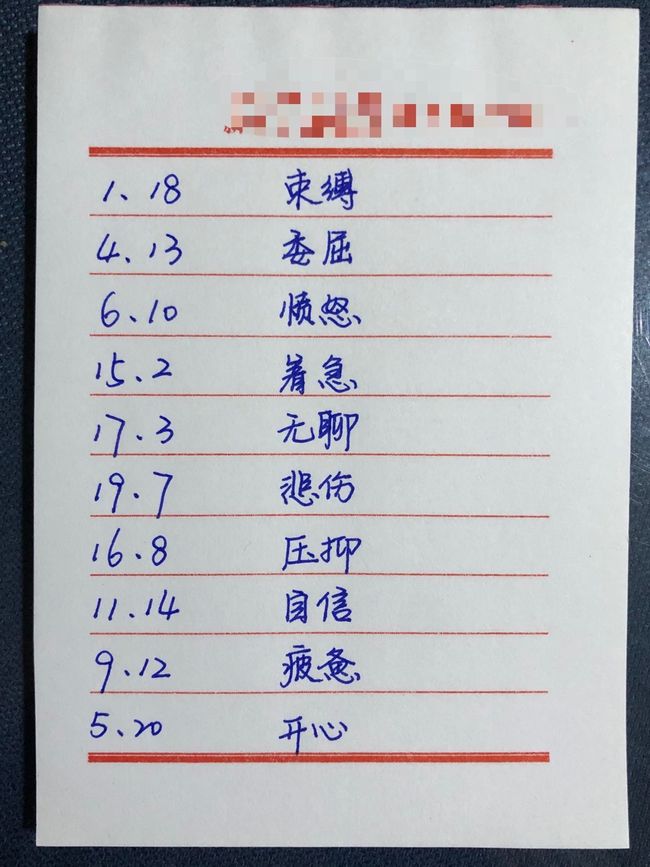 1.18 束缚
4.13 委屈
6.10 愤怒
15.2 着急
17.3 无聊
19.7 悲伤
16.8 压抑
11.14 自信
9.12 疲惫
5.20 开心